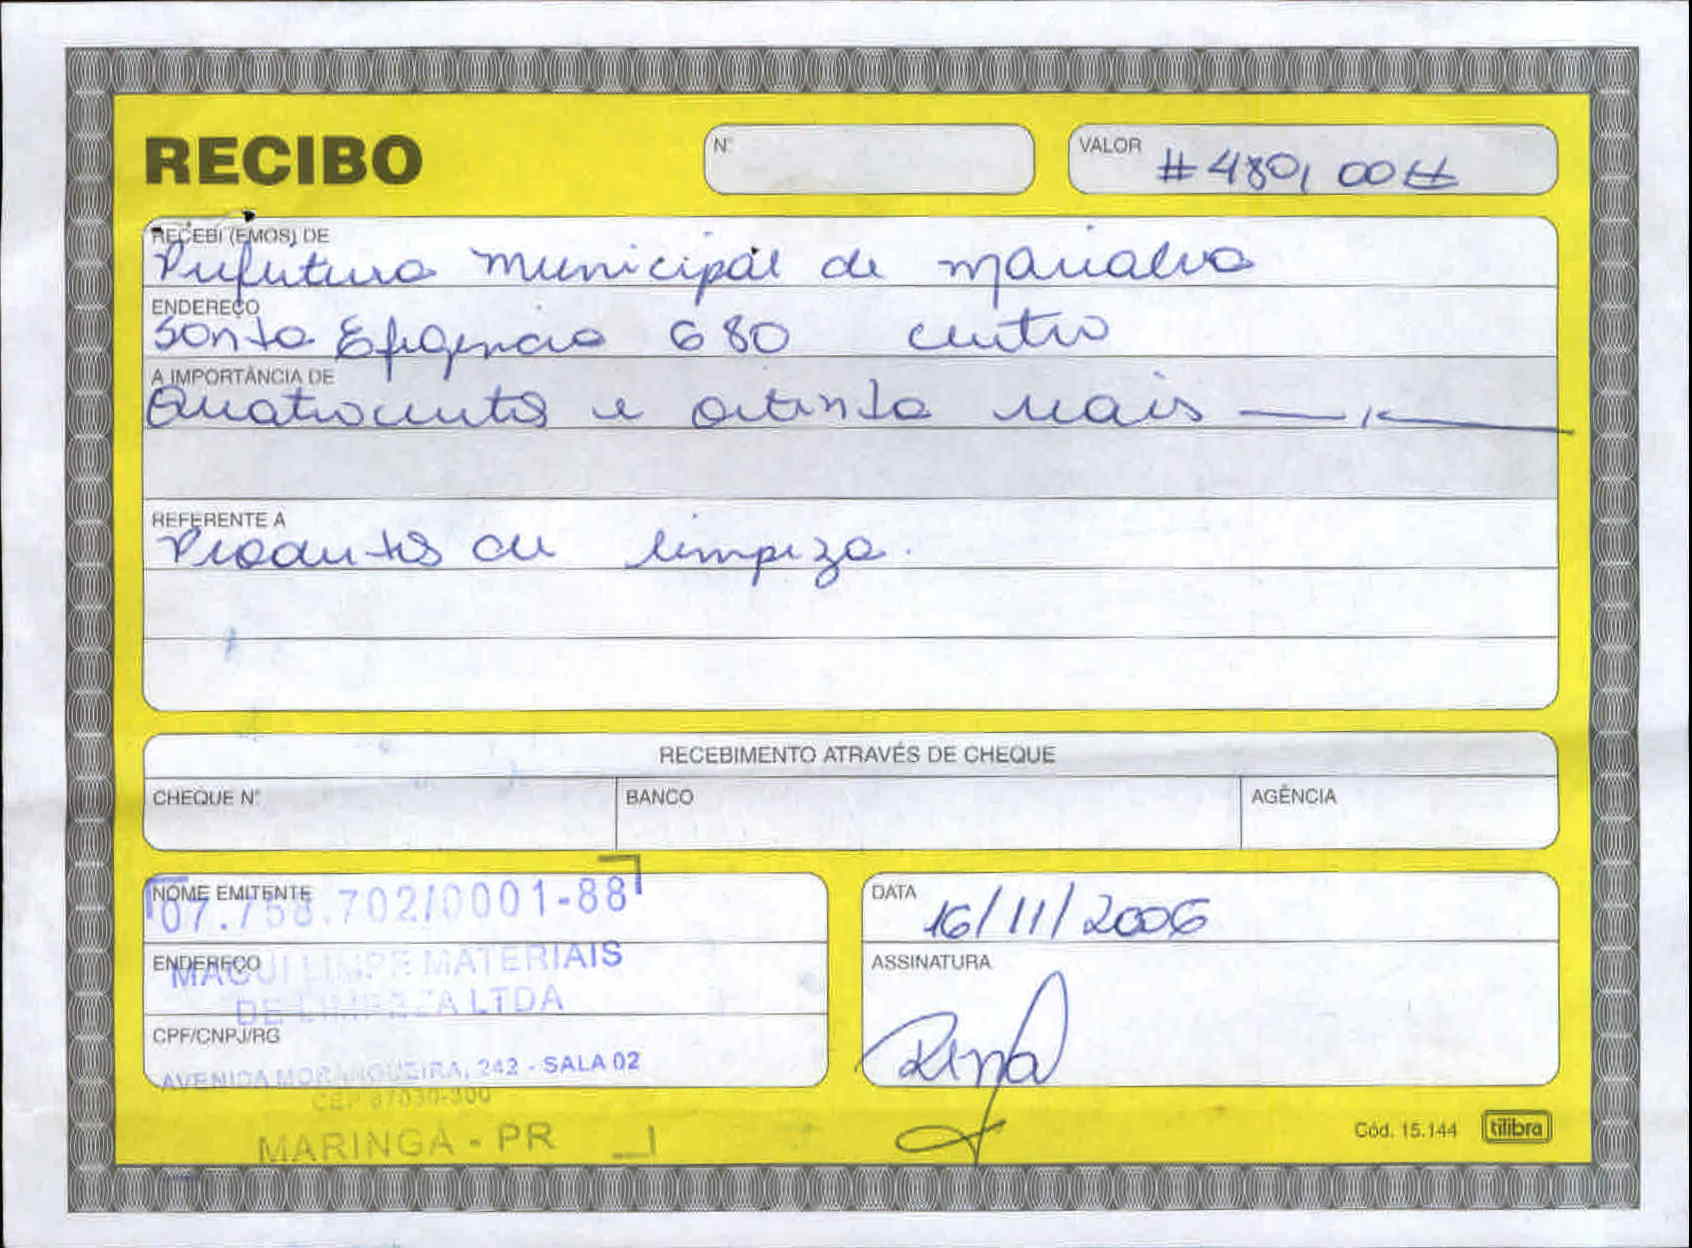 RECIBO
Nº
VALOR #480,00#
RECEBI (EMOS) DE
Prefeitura municipal de marialva
ENDEREÇO
Santa Efigencia 680 centro
A IMPORTÂNCIA DE
Quatrocentos e oitenta reais
REFERENTE A
Produtos de limpeza.
RECEBIMENTO ATRAVÉS DE CHEQUE
CHEQUE Nº BANCO AGÊNCIA
NOME EMITENTE
07.758.702/0001-88
ENDEREÇO
MAGUI LIMPE MATERIAIS
DE LIMPEZA LTDA
CPF/CNPJ/RG
AVENIDA MORANGUEIRA, 242 - SALA 02
CEP 87030-300
MARINGÁ - PR
DATA 16/11/2006
ASSINATURA
Cód. 15.144 tilibra